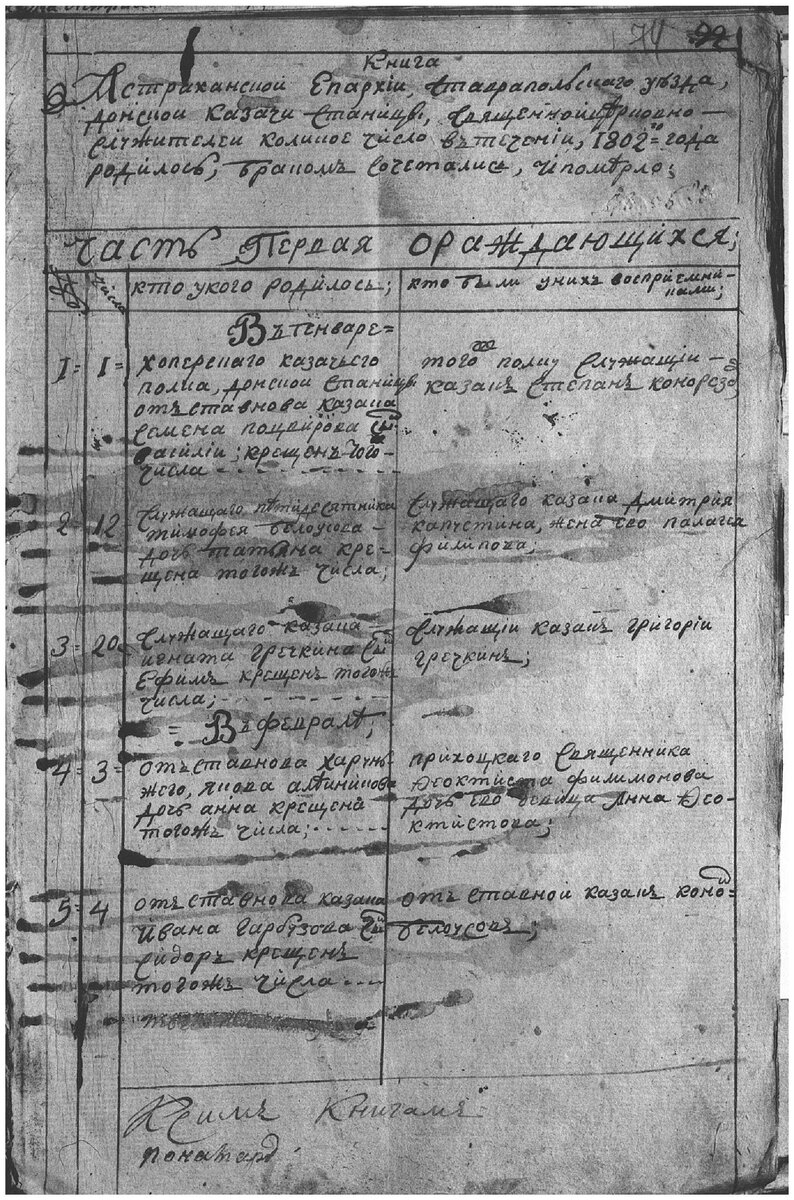 74 92
Книга
Астраханской Епархіи, Ставрапольскаго уѣзда,
донской казачи Станицы, Священноцерковно-
служителеи коликое число втеченіи, 1802го= года
родилось, бракомъ Сочетались, ипомѣрло;
Часть Первая ораждающихся;
числа
кто укого родилось; кто были унихъ восприемни-
ками;
Въ генваре=
1= 1= хоперскаго казачьего
полка, донской Станицы
отъставнова казака
Семена поцвирова Сын
василіи; крещенъ того-
числа
того полку Служащіи -
казакъ Степанъ конорезо,
2 12 Служащаго пѣтидесятника
тимофея белоусова -
дочь татьяна кре-
щена тогожъ числа;
Служащаго казака дмитрия
капустина, жена ево палагея
филипова;
3= 20 Служащаго казака
игната гречкина Сын
Ефимъ крещенъ тогожъ
числа;
Служащіи казакъ григоріи
гречкинъ;
= Въ февралѣ,
4= 3= отъставнова харунь-
жего, якова алѣйникова
дочь анна крещена
тогожъ числа;
прихоцкаго Священника
Ѳеоктиста филимонова
дочь ево девица Анна Ѳео-
ктистова;
5= 4 отъставнова казака
Ивана Гарбузова Сын
Сидоръ крещенъ
тогожъ числа
отъставной казакъ конд=
белоусовъ;
Книгамъ